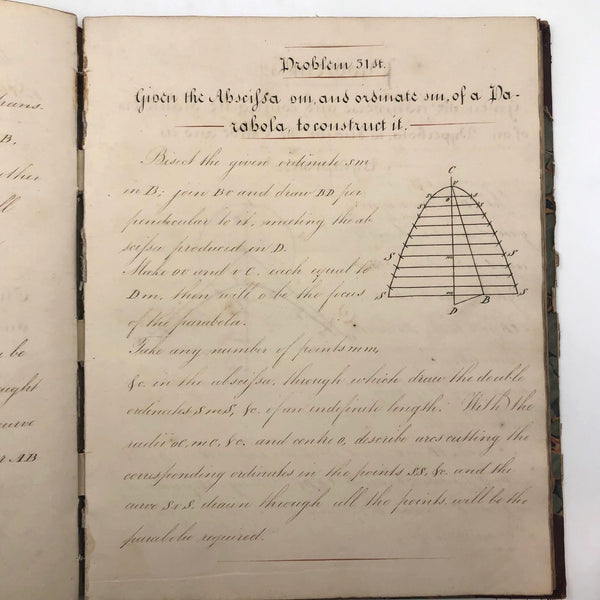 hans
B,
other
ll
be
aight
curve
r AB
Problem 51st.
Given the Abscissa vm, and ordinate sm, of a Pa-
rabola, to construct it.
Bisect the given ordinate sm
in B; join Bv and draw BD per
pendicular to it, meeting the ab
scissa produced in D.
Make ov and v C, each equal to
Dm, then will o be the focus
of the parabola.
Take any number of points mm,
&c. in the abscissa, through which draw the double
ordinates SmS, &c. of an indefinite length. With the
radii oc, mc, &c. and centre o, describe arcs cutting the
corresponding ordinates in the points SS, &c. and the
curve SvS, drawn through all the points will be the
parabola required.
C
v
S
S
S
S
m
m
S
S
D
B